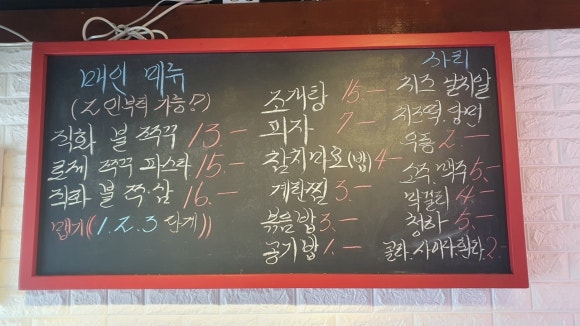 메인 메뉴
(2인부터 가능!?)
직화 불 쭈꾸 13.-
로제 쭈꾸 파스타 15.-
직화 불 쭉.삼 16.-
맵기((1.2.3 단계))
조개탕 15.-
피자 7-
참치마요(밥) 4-
계란찜 3.-
볶음밥 3.-
공기밥 1.-
사리
치즈 날치알
치즈떡.당면
우동 2.-
소주 맥주 5.-
막걸리 4.-
청하 5.-
콜라.사이다.환타.2-